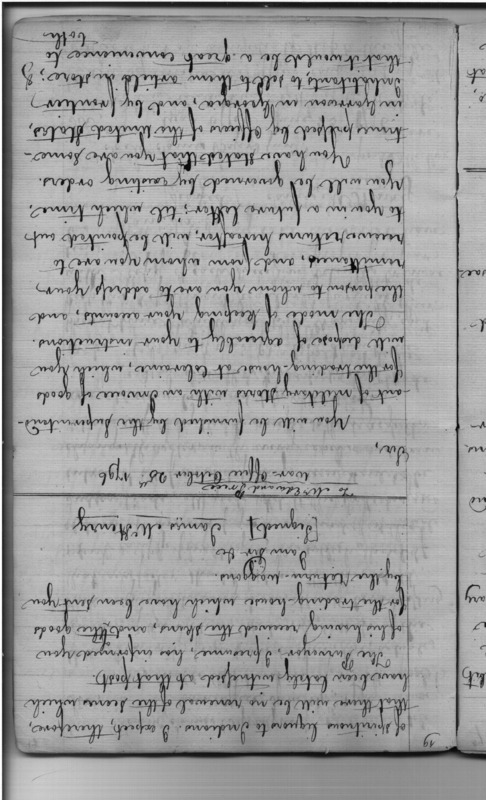 19
of spirituous liquors to Indians. I expect, therefore,
that there will be no renewal of the scenes which
have been lately witnessed at that post.
The Surveyor, I presume, has informed you
of his having received the skins, and the goods
for the trading-house which have been sent you
by the return-waggons.
I am Sir &c
[Signed] James McHenry
To Mr Edward Price
War Office October 25th 1796
Sir,
You will be furnished by the Superintend-
ant of Military Stores with an invoice of goods
for the trading-house at Coleraine, which you
will dispose of agreeably to your instructions.
The mode of keeping your accounts, and
the person to whom you are to address your
remittances, and from whom you are to
receive returns hereafter, will be pointed out
to you in a future letter; 'til which time,
you will be governed by existing orders.
You have stated that you are some-
times pressed by Officers of the United States,
in garrison in Georgia, and by frontier
inhabitants, to sell to them articles in store; &
that it would be a great convenience to
both